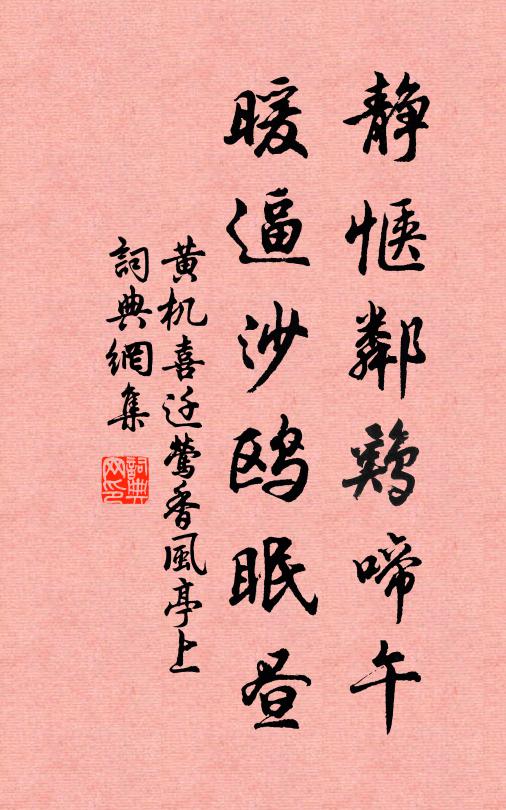 静惬鄰鷄啼午
暖逼沙鸥眠昼
黄机喜迁鶯香風亭上
詞典網集
詞典网印